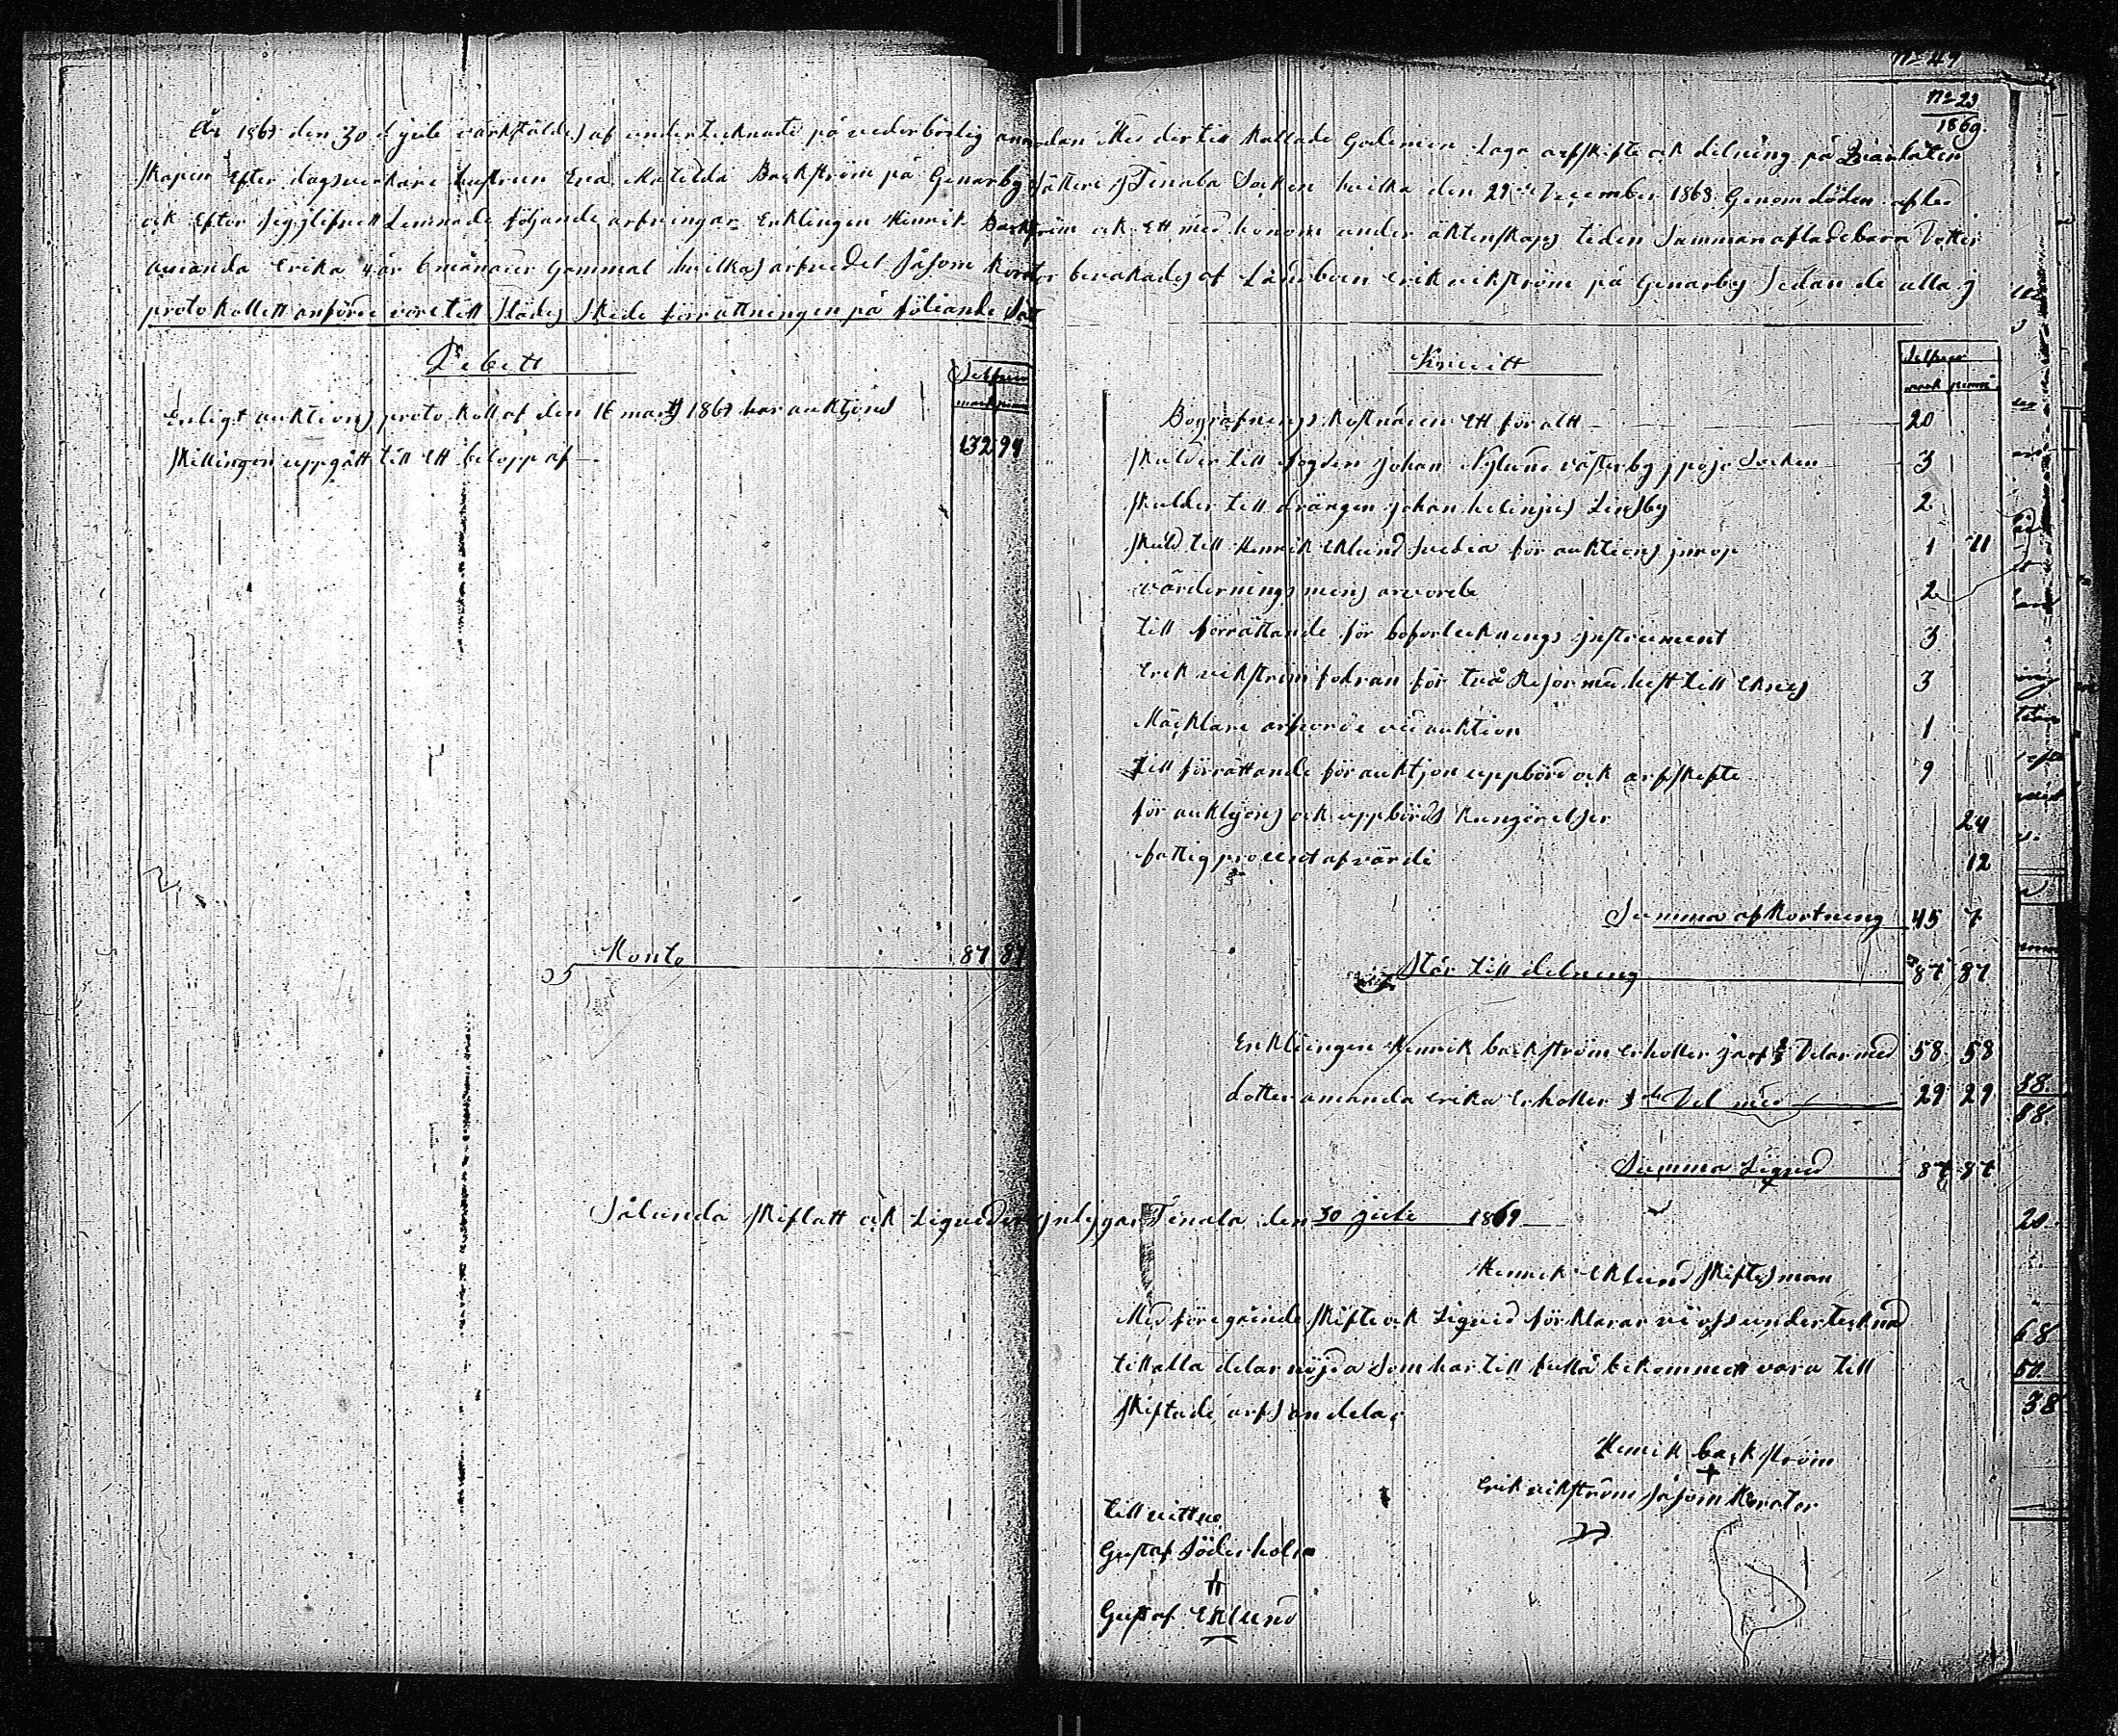 No 47
No 23
1869.
År 1869 den 30 de jule värkstäldes af undertecknade på vederbörlig anmodan Med der till kallade Godemän Laga arfskifte ock delning på qvarlåten
skapen Efter dagsverkare hustrun Eva Matilda Backström på Genarby Säteri j Tenala Socken hvilka den 29 de December 1868 Genom döden afled
ock Efter sig j lifvett Lemnade följande arfvingar Enklingen Henrik Backström ock Ett med honom under äktenskaps tiden Sammanaflade barn Dotter
amanda Erika 4 år 6 månader Gammal hvilkas arfvedel Såsom Korator bevakades af Lånbon Erik vikström på Genarby Sedan de alla j
protokollett anförde vore till städes Skede förrättningen på föliande Sätt
Debett
Silfver
mark penni
Enligt auktions protokoll af den 16 marts 1869 har auktjons
skillingen uppgått till Ett belopp af 132 94
Monto 87 87
Krevitt
Silfver
mark penni
Begrafnings kostnaden Ett för allt 20
skulder till fogden johan Nylund västerby j pojo Socken 3
skulder till drängen johan helenjus Lindsby 2
skuld till Henrik Eklund Svedia för auktions prop 1 71
värdernings mens arvorde 2
till förrättande för bofortecknings jnstrument 3
Erik vikström fodran för två Resor med hest till Eknes 3
Mäcklare arfvorde ved auktion 1
till förrättande för auktjon uppbörd ock arfskifte 9
för auktjons ock uppbörds kungörelser 24
fattig procent af värde 12
Summa afkortning 45 7
Står till delning 87 87
Enklingen Henrik backström Erhåller j arf 2/3 Delar med 58 58
dotter amanda Erika Erhåller 1/3 de Del med 29 29
Summa Liqvid 87 87
Sålunda skiftatt ock Liqviderat jntygar Tenala den 30 jule 1869
Henrik Eklund skiftesman
Med föregåinde skifte ock Liqvid förklarar vi ofs undertecknad
till alla delar nöjda Som har till fullå bekommett vara till
skiftade arfs andelar
Henrik backström
+
Erik vikström såsom Korator
till vittne
Gustaf Söderholm
Gustaf Eklund